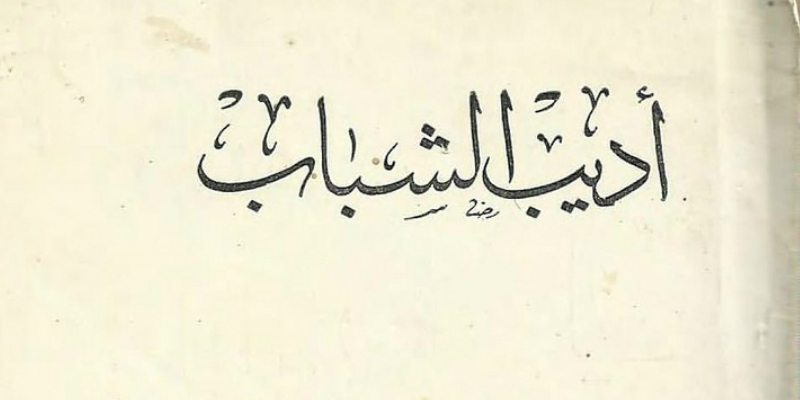 أديب الشباب